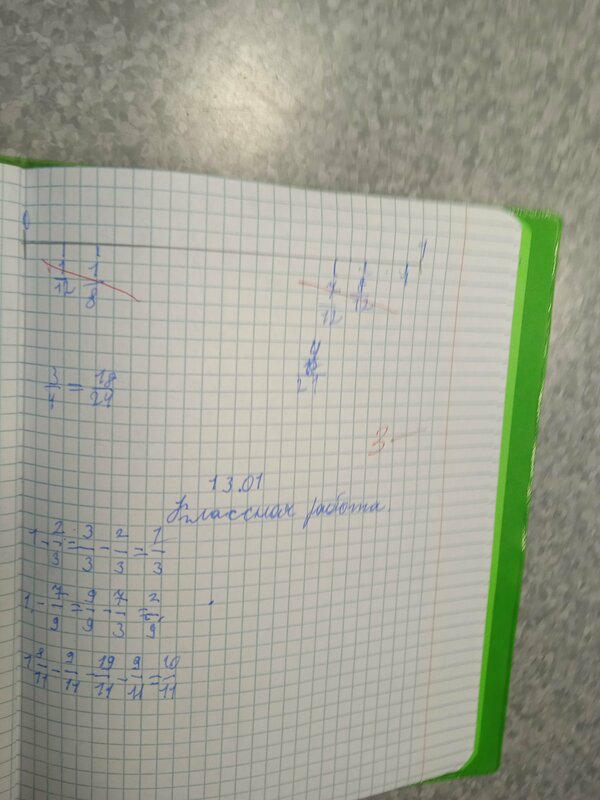 0 1
1/12 1/8 7/12 1/12
3/4 = 18/24
3-
13.01
Классная работа.
1 - 2/3 = 3/3 - 2/3 = 1/3
1 - 7/9 = 9/9 - 7/3 = 2/9
1 8/11 - 9/11 = 19/11 - 9/11 = 10/11